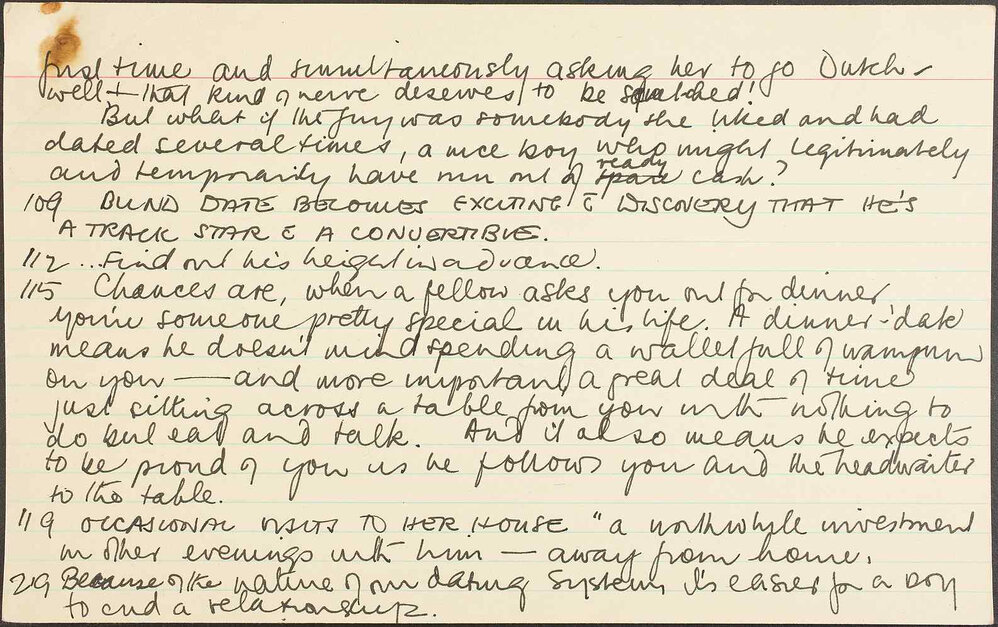 first time and simultaneously asking her to go Dutch –
well – that kind of nerve deserves to be squelched!
But what if the guy was somebody she liked and had
dated several times, a nice boy who might legitimately
and temporarily have run out of spare ready cash?
109 BLIND DATE BECOMES EXCITING c̄ DISCOVERY THAT HE'S
A TRACK STAR c̄ A CONVERTIBLE.
112 ...Find out his height in advance.
115 Chances are, when a fellow asks you out for dinner
you're someone pretty special in his life. A dinner-date
means he doesn't mind spending a wallet full of wampum
on you — and more important, a great deal of time
just sitting across a table from you with nothing to
do but eat and talk. And it also means he expects
to be proud of you as he follows you and the headwaiter
to the table.
119 OCCASIONAL VISITS TO HER HOUSE "a worthwhile investment
in other evenings with him — away from home.
219 Because of the nature of our dating system, it's easier for a boy
to end a relationship.